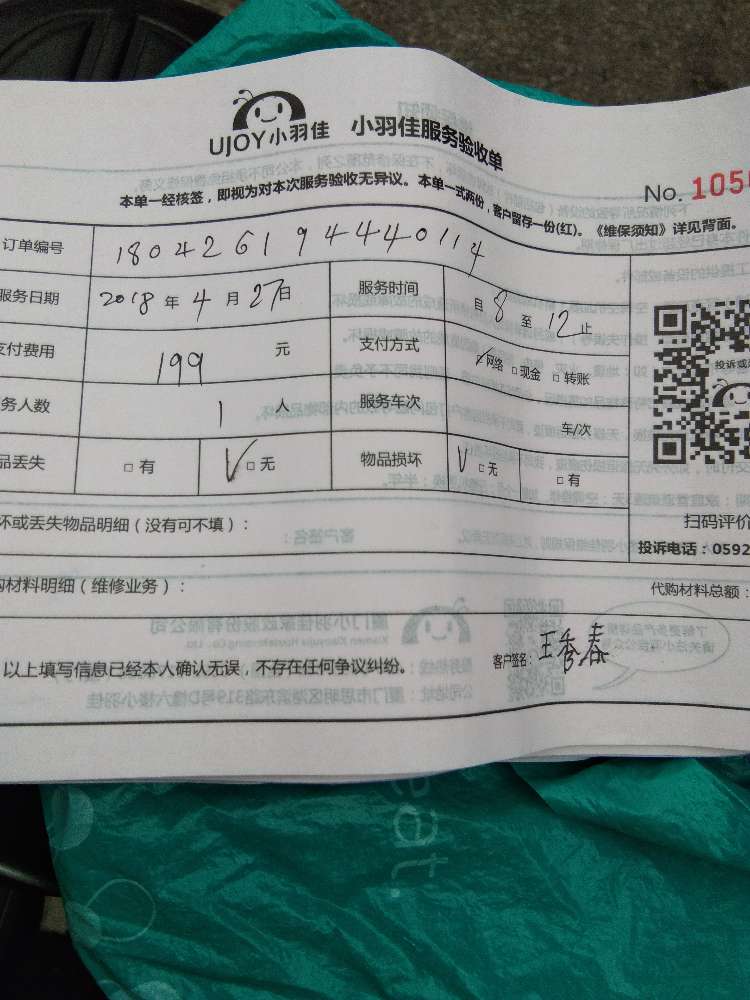 UJOY小羽佳 小羽佳服务验收单
No. 1050
本单一经核签，即视为对本次服务验收无异议。本单一式两份，客户留存一份(红)。《维保须知》详见背面。
订单编号 180426194440114
服务日期 2018 年 4 月 27 日 服务时间 自 8 至 12 止
支付费用 199 元 支付方式 ✓网络 □现金 □转账
务人数 1 人 服务车次 车/次
品丢失 □有 ✓□无 物品损坏 ✓□无 □有
投诉或
扫码评价
投诉电话：0592
坏或丢失物品明细（没有可不填）：
购材料明细（维修业务）： 代购材料总额：
以上填写信息已经本人确认无误，不存在任何争议纠纷。 客户签名：王秀春
eat.